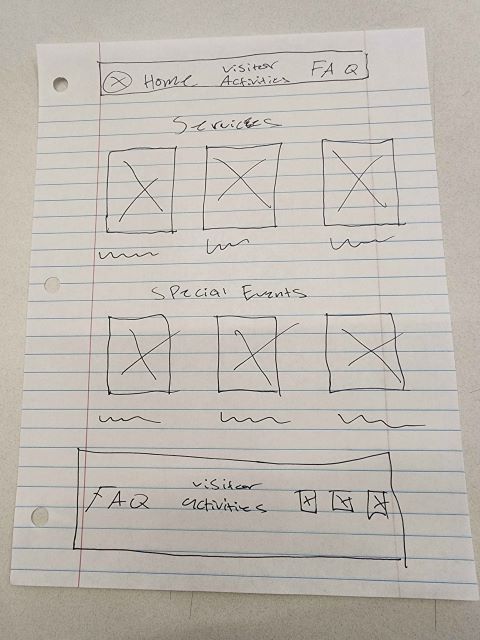 Home
Visitor
Activities
FAQ
Services
Special Events
FAQ
visitor
activities